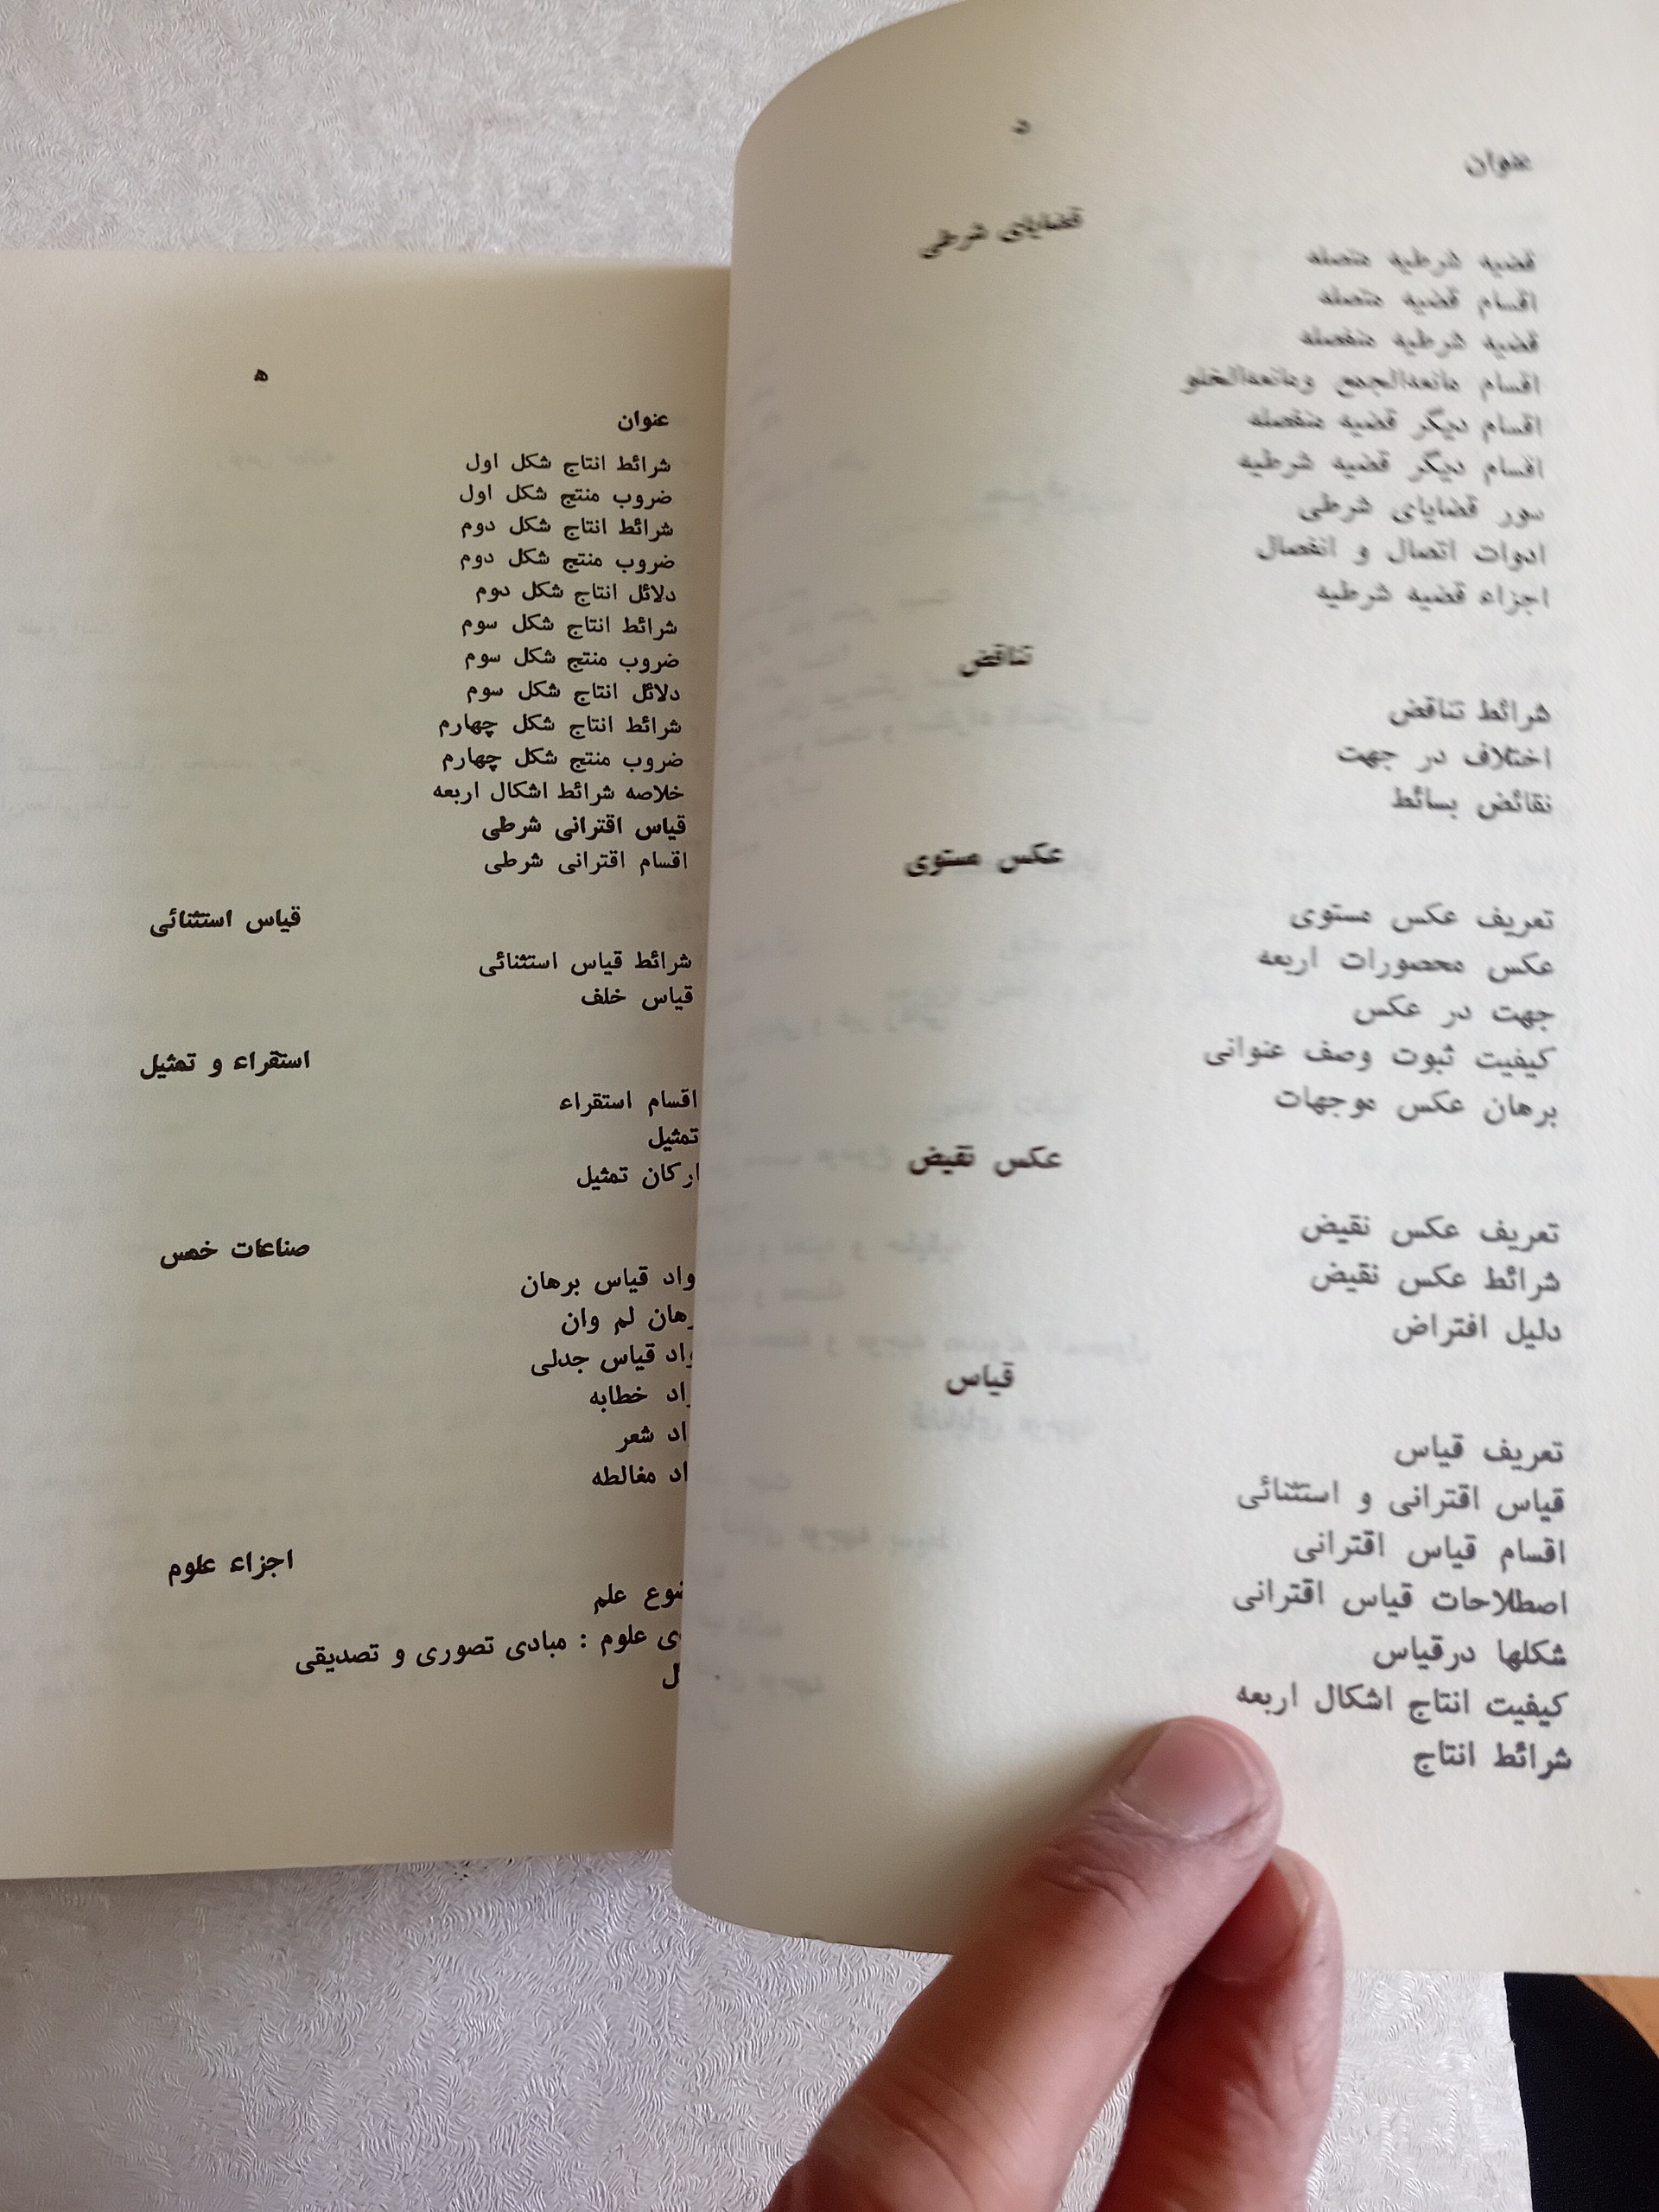 د
عنوان
قضایای شرطی
قضیه شرطیه متصله
اقسام قضیه متصله
قضیه شرطیه منفصله
اقسام مانعةالجمع ومانعةالخلو
اقسام دیگر قضیه منفصله
اقسام دیگر قضیه شرطیه
سور قضایای شرطی
ادوات اتصال و انفصال
اجزاء قضیه شرطیه
تناقض
شرائط تناقض
اختلاف در جهت
نقائض بسائط
عکس مستوی
تعریف عکس مستوی
عکس محصورات اربعه
جهت در عکس
کیفیت ثبوت وصف عنوانی
برهان عکس موجهات
عکس نقیض
تعریف عکس نقیض
شرائط عکس نقیض
دلیل افتراض
قیاس
تعریف قیاس
قیاس اقترانی و استثنائی
اقسام قیاس اقترانی
اصطلاحات قیاس اقترانی
شکلها درقیاس
کیفیت انتاج اشکال اربعه
شرائط انتاج
ه
عنوان
شرائط انتاج شکل اول
ضروب منتج شکل اول
شرائط انتاج شکل دوم
ضروب منتج شکل دوم
دلائل انتاج شکل دوم
شرائط انتاج شکل سوم
ضروب منتج شکل سوم
دلائل انتاج شکل سوم
شرائط انتاج شکل چهارم
ضروب منتج شکل چهارم
خلاصه شرائط اشکال اربعه
قیاس اقترانی شرطی
اقسام اقترانی شرطی
قیاس استثنائی
شرائط قیاس استثنائی
قیاس خلف
استقراء و تمثیل
اقسام استقراء
تمثیل
ارکان تمثیل
صناعات خمس
قیاس برهان
لم وان
قیاس جدلی
خطابه
شعر
مغالطه
اجزاء علوم
علم
علوم : مبادی تصوری و تصدیقی